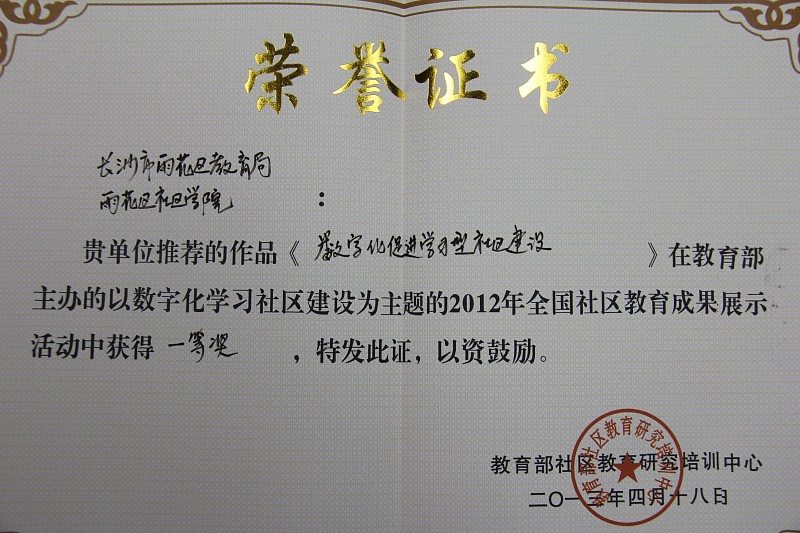 荣誉证书
长沙市雨花区教育局
雨花区社区学院 :
贵单位推荐的作品《数字化促进学习型社区建设》在教育部
主办的以数字化学习社区建设为主题的2012年全国社区教育成果展示
活动中获得 一等奖 ，特发此证，以资鼓励。
教育部社区教育研究培训中心
二〇一三年四月十八日
教育部社区教育研究培训中心